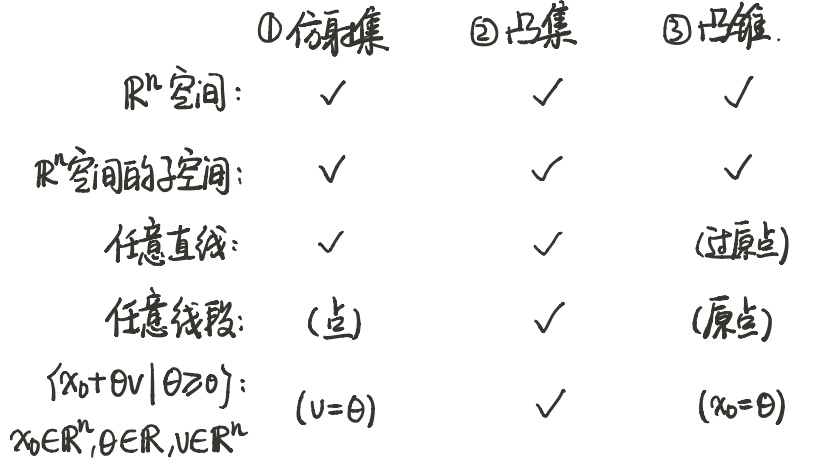 ①仿射集 ②凸集 ③凸锥.
Rⁿ空间: ✓ ✓ ✓
Rⁿ空间的子空间: ✓ ✓ ✓
任意直线: ✓ ✓ (过原点)
任意线段: (点) ✓ (原点)
{x₀+θv|θ≥0}: (v=θ) ✓ (x₀=θ)
x₀∈Rⁿ,θ∈R,v∈Rⁿ